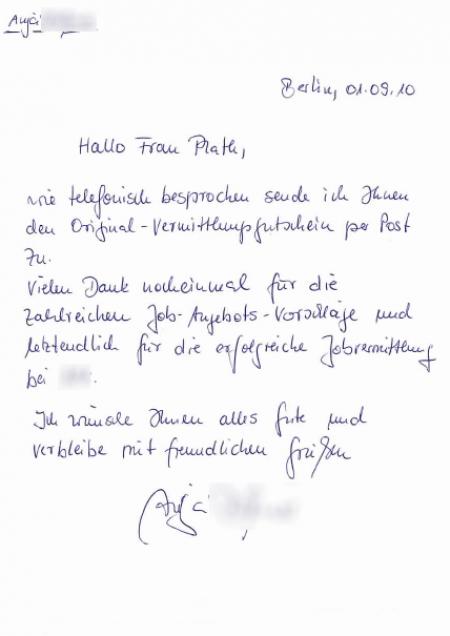 Anja
Berlin, 01.09.10
Hallo Frau Plath,
wie telefonisch besprochen sende ich Ihnen
den Original-Vermittlungsgutschein per Post
zu.
Vielen Dank nocheinmal für die
zahlreichen Job-Angebots-Vorschläge und
letztendlich für die erfolgreiche Jobvermittlung
bei
Ich wünsche Ihnen alles gute und
verbleibe mit freundlichen Grüßen
Anja